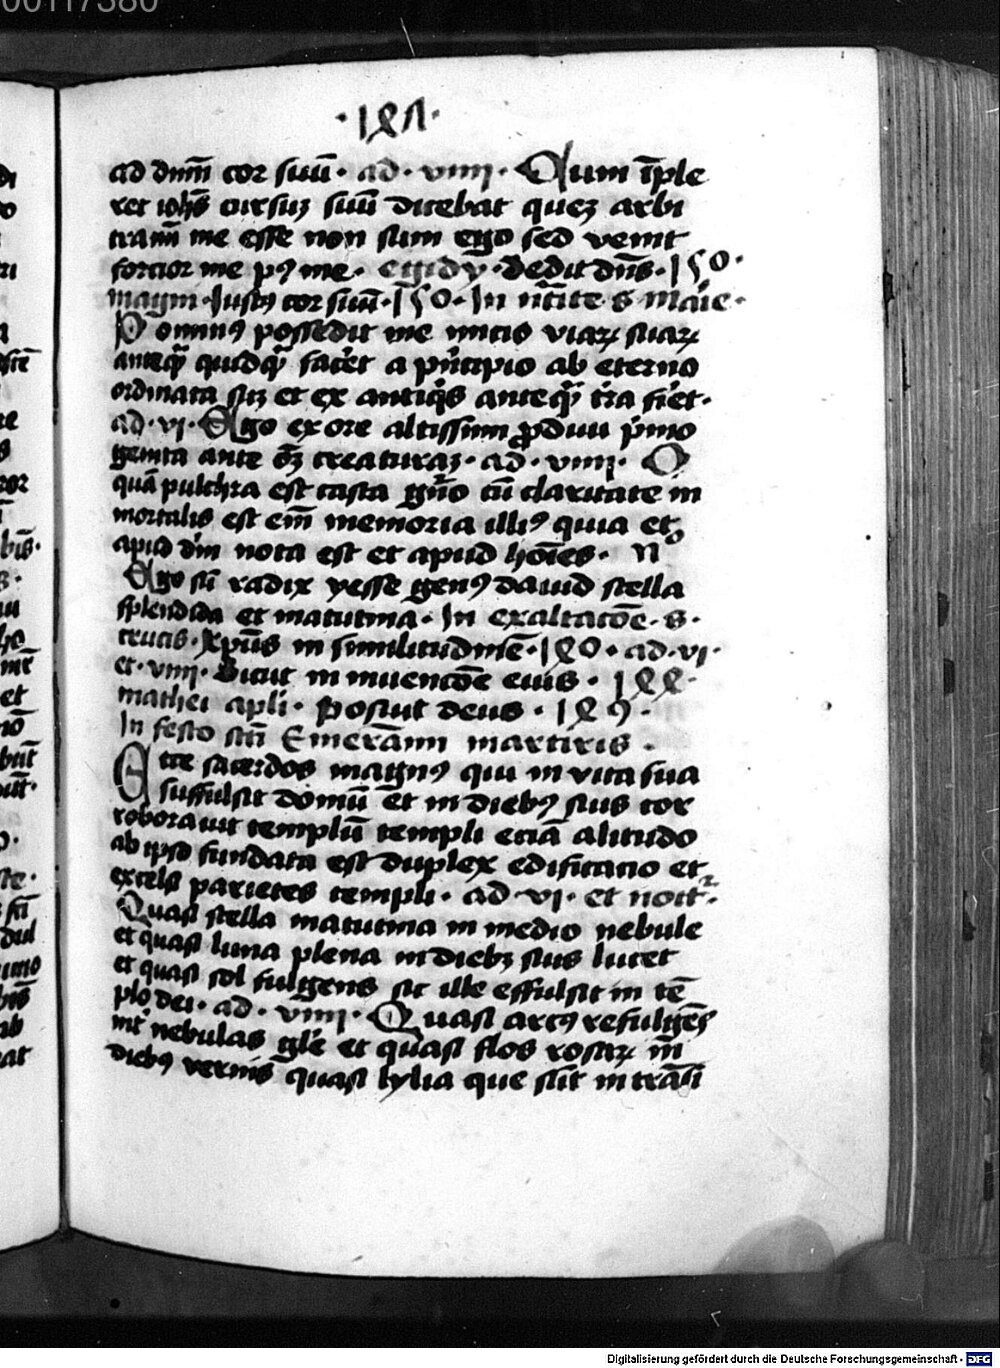 00117380
·181·
ad dnm̄ cor suū· ad· viiii· Qum īple
ret ioh̄s cursuȝ suū dicebat queȝ arbi
tramī me esse non sum ego sed venit
forcior me pꝰ me· egidy· dedit dn̄s· 150·
magni· Iustꝰ cor suū· 150· In nr̄ite s· marie·
Dominꝰ possedit me inicio viaꝝ suaꝝ
anteq̄ꝫ quidq̄ faceret a prīcipio ab eterno
ordinata suȝ et ex antiqis anteq̄ꝫ tra fiet·
ad· vi· Ego ex ore altissimi ꝓdivi pimo
genita ante oēȝ creaturaȝ· ad· viiii· O
quā pulchra est casta gn̄o cū claritate in
mortalis est eīm memoria illiꝰ quia et
apud dm̄ nota est et apud hoīes· nº
Ego sū radix yesse genꝰ dauid stella
splendida et matutina· In exaltacōe· s·
crucis· Xpūs in similitudinē· 180· ad· vi·
et· viiii· Sicut in inuencōe eius· 188·
mathei apli· Posuit deus· 189·
In festo scī Emerāmi martiris·
Ecce sacerdos magnꝰ qui in vita sua
suffulsit domū et in diebꝰ suis cor
roborauit templū templi eciā alitudo
ab ipso fundata est duplex edificatio et
excelsi parietes templi· ad· vi· et noct·
Quasi stella matutina in medio nebule
et quasi luna plena in diebȝ suis lucet
et quasi sol fulgens sic ille effulsit in tē
plo dei· ad· viiii· Quasi arcꝰ refulgēs
int̄ nebulas glīe et quasi flos rosaꝝ in̄
diebꝰ vernis quasi lylia que sūt in trāsi
Digitalisierung gefördert durch die Deutsche Forschungsgemeinschaft - DFG